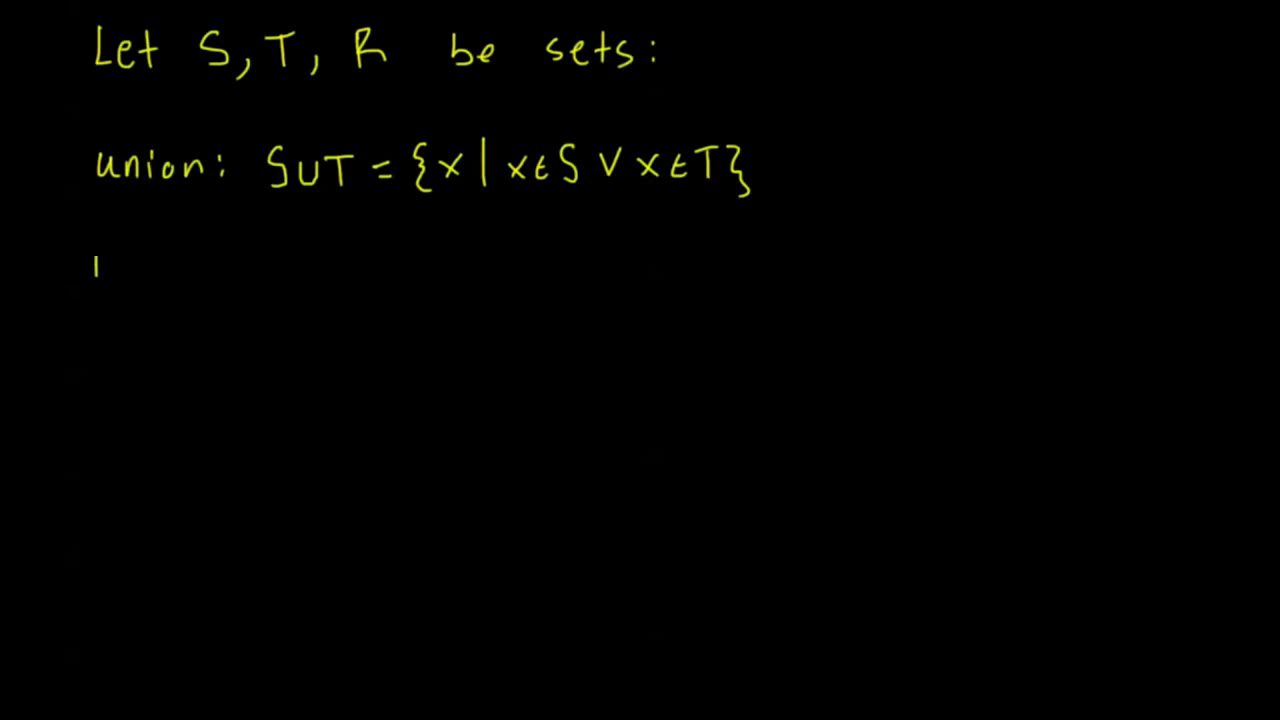 Let S, T, R be sets:
union: S∪T = {x | x∈S ∨ x∈T}